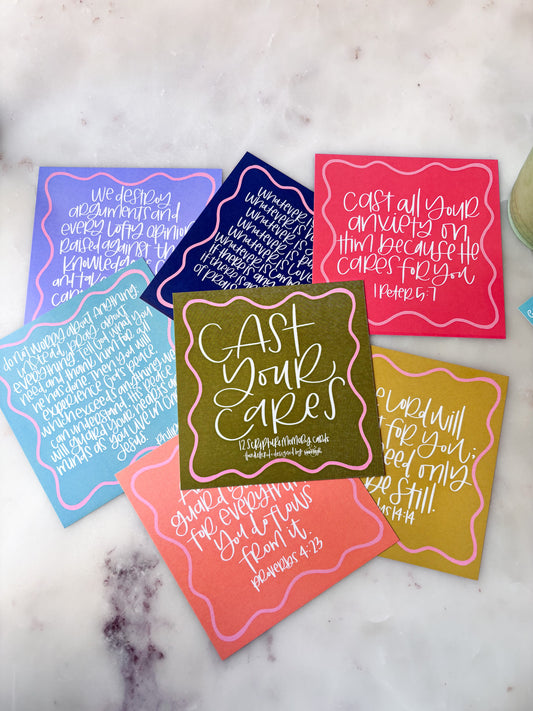 We destroy
arguments and
every lofty opinion
raised against th
knowledge
and take
Whatever
Whatever is
Whatever
Whatever is
Whatever
Whatever is
if there is any
of prais
cast all your
anxiety on
Him because He
cares for you
1 Peter 5:7
do not worry about anything,
instead, pray about
everything. Tell God what you
need and thank him for all
he has done. Then you will
experience God's peace
which exceeds anything we
can understand. His peace
will guard your hearts and
minds as you live in Ch
Jesus.
CAST
YOUR
CARES
12 SCRIPTURE MEMORY cards
e Lord will
t for you;
eed only
be still.
us 14:14
guard y
for everything
you do flows
from it.
proverbs 4:23